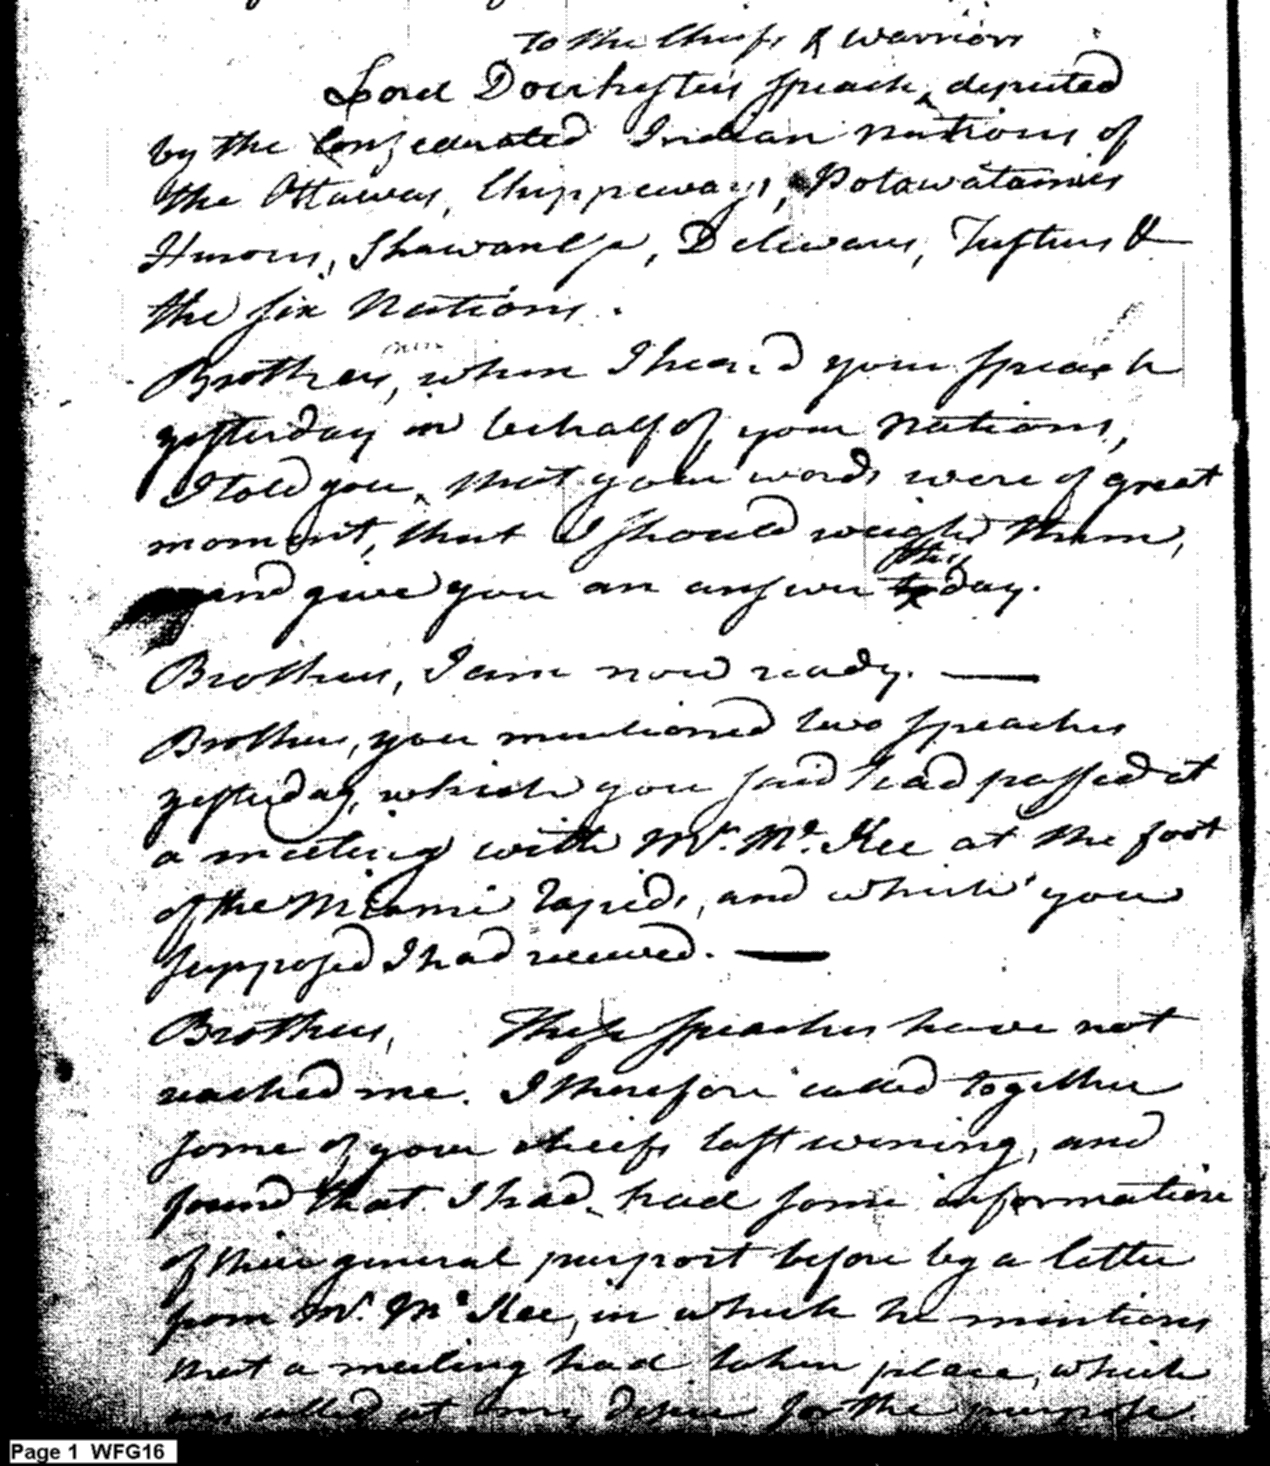 to the Chiefs & Warriors
Lord Dorchester's Speach ^ deputed
by the Confederated Indian Nations of
the Ottawas, Chippeways, Potawatamies
Hurons, Shawanese, Delewars,
the six Nations.
Brothers, when I heard your Speach
yesterday in behalf of your Nations,
I told you, that your words were of great
moment, that I should weigh them,
and give you an answer this day.
Brothers, I am now ready. —
Brothers, you mentioned two speaches
yesterday, which you said had passed at
a meeting with Mr. Mc. Kee at the foot
of the Miamie Rapids, and which you
supposed I had received. —
Brothers, These speaches have not
reached me. I therefore called together
some of your chiefs last evening, and
found that I had had some information
of their general purport before by a letter
from Mr. Mc Kee, in which he mentions
that a meeting had taken place, which
was called at my desire for the purpose
Page 1 WFG16